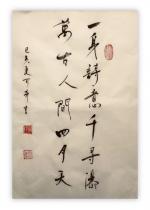 一身詩意千尋瀑
萬古人間四月天
己亥夏月